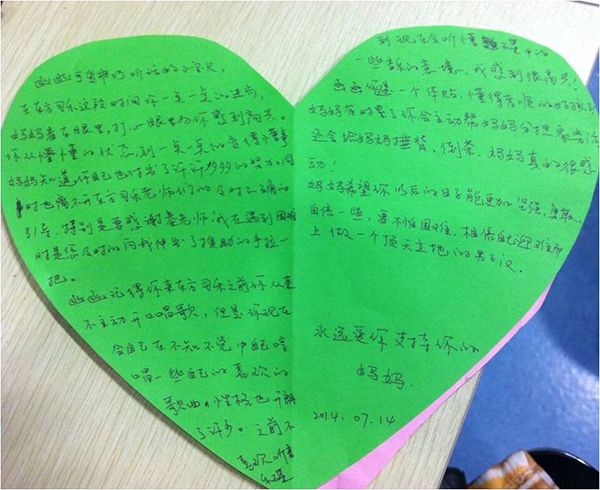 乖巧听话的小宝贝,
在东方园禾这段时间你一点一点的进步,
妈妈看在眼里,打心眼里为你感到高兴。
你从懵懂的状态,到一点一点的变得懂事
妈妈知道你自己也付出了许许多多的努力,同
时也离不开东方园禾老师们的及时正确的
引导,特别是要感谢老师,我在遇到困难
时是您及时的向我伸出了援助的手拉一
把。
记得你来东方园禾之前你从来
不主动开口唱歌,但是你现在
会自己在不知不觉中自己哼
唱一些自己的喜欢的
歌曲。性格也开朗
了许多。之前不
喜欢听音
乐
到现在会听懂中的
一些音乐的意境,我感到很高兴!
是一个体贴,懂得孝顺的好孩子
妈妈有时累了你会主动帮妈妈分担家务活
还会给妈妈捶背,倒茶,妈妈真的很感
动!
妈妈希望你以后的日子能更加坚强,勇敢,
自信一些,要不怕困难,相信自己迎难而
上做一个顶天立地的男子汉。
永远爱你支持你的
妈妈.
2014.07.14